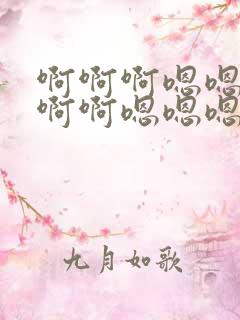 啊啊啊嗯嗯
啊啊嗯嗯嗯
九月如歌